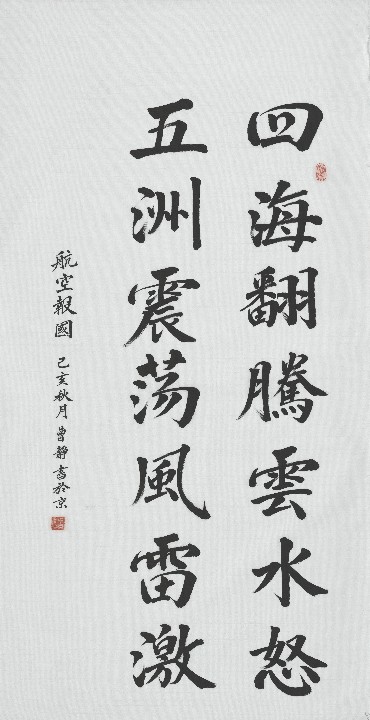 四海翻騰雲水怒
五洲震荡風雷激
航空報國
己亥秋月曾靜書於京